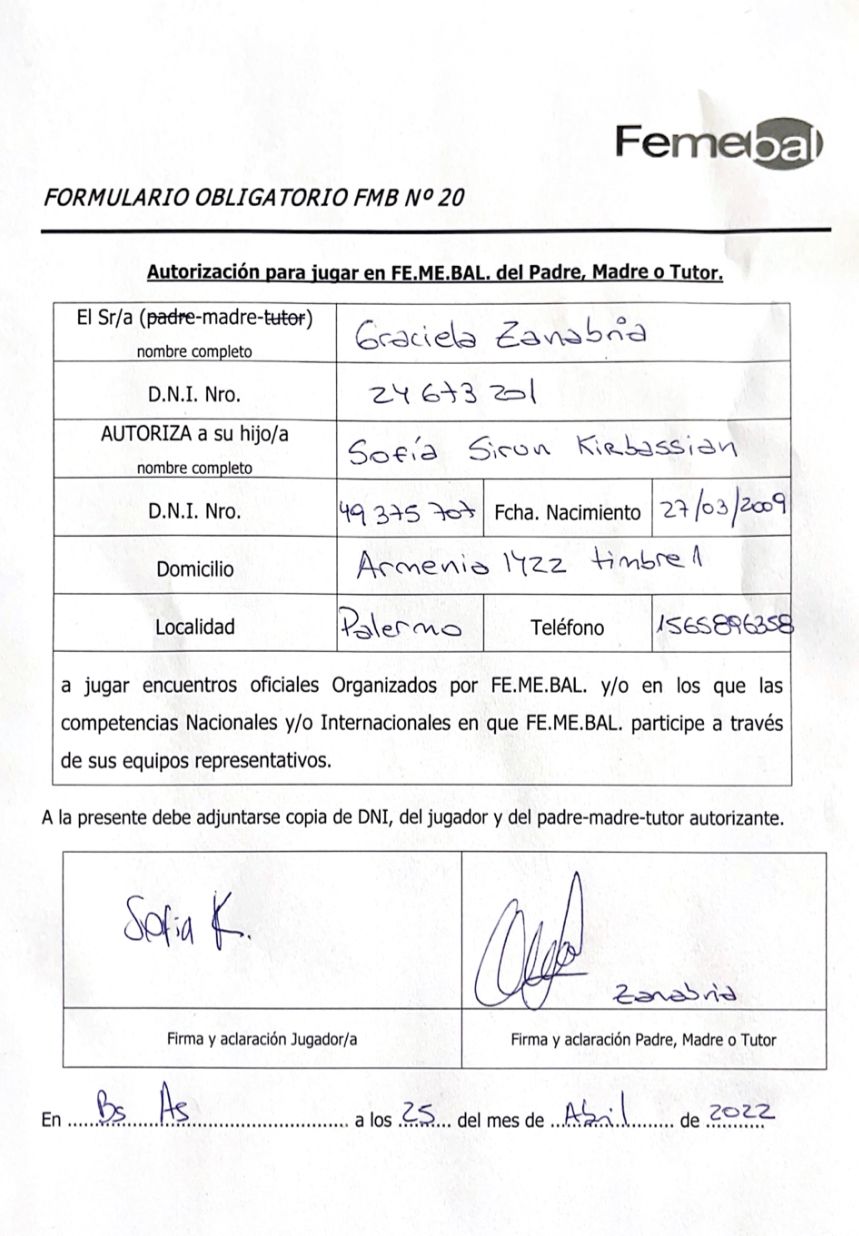 Femebal
FORMULARIO OBLIGATORIO FMB Nº 20
Autorización para jugar en FE.ME.BAL. del Padre, Madre o Tutor.
El Sr/a (padre-madre-tutor)
nombre completo
Graciela Zanabria
D.N.I. Nro.
24 673 201
AUTORIZA a su hijo/a
nombre completo
Sofía Sirun Kirbassian
D.N.I. Nro.
49 375 707
Fcha. Nacimiento
27/03/2009
Domicilio
Armenia 1422 timbre 1
Localidad
Palermo
Teléfono
1565896358
a jugar encuentros oficiales Organizados por FE.ME.BAL. y/o en los que las
competencias Nacionales y/o Internacionales en que FE.ME.BAL. participe a través
de sus equipos representativos.
A la presente debe adjuntarse copia de DNI, del jugador y del padre-madre-tutor autorizante.
Sofia K.
Zanabria
Firma y aclaración Jugador/a
Firma y aclaración Padre, Madre o Tutor
En Bs As a los 25 del mes de Abril de 2022